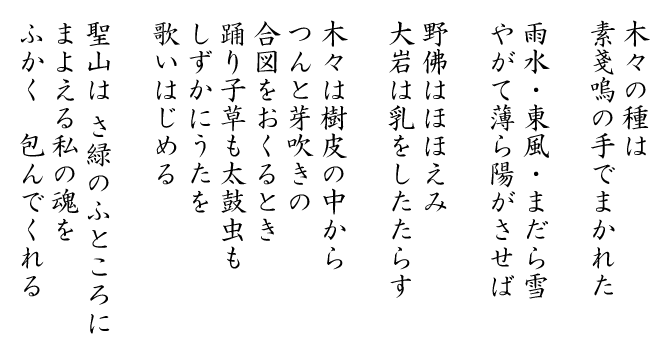 木々の種は
素戔嗚の手でまかれた
雨水・東風・まだら雪
やがて薄ら陽がさせば
野佛はほほえみ
大岩は乳をしたたらす
木々は樹皮の中から
つんと芽吹きの
合図をおくるとき
踊り子草も太鼓虫も
しずかにうたを
歌いはじめる
聖山は さ緑のふところに
まよえる私の魂を
ふかく　包んでくれる